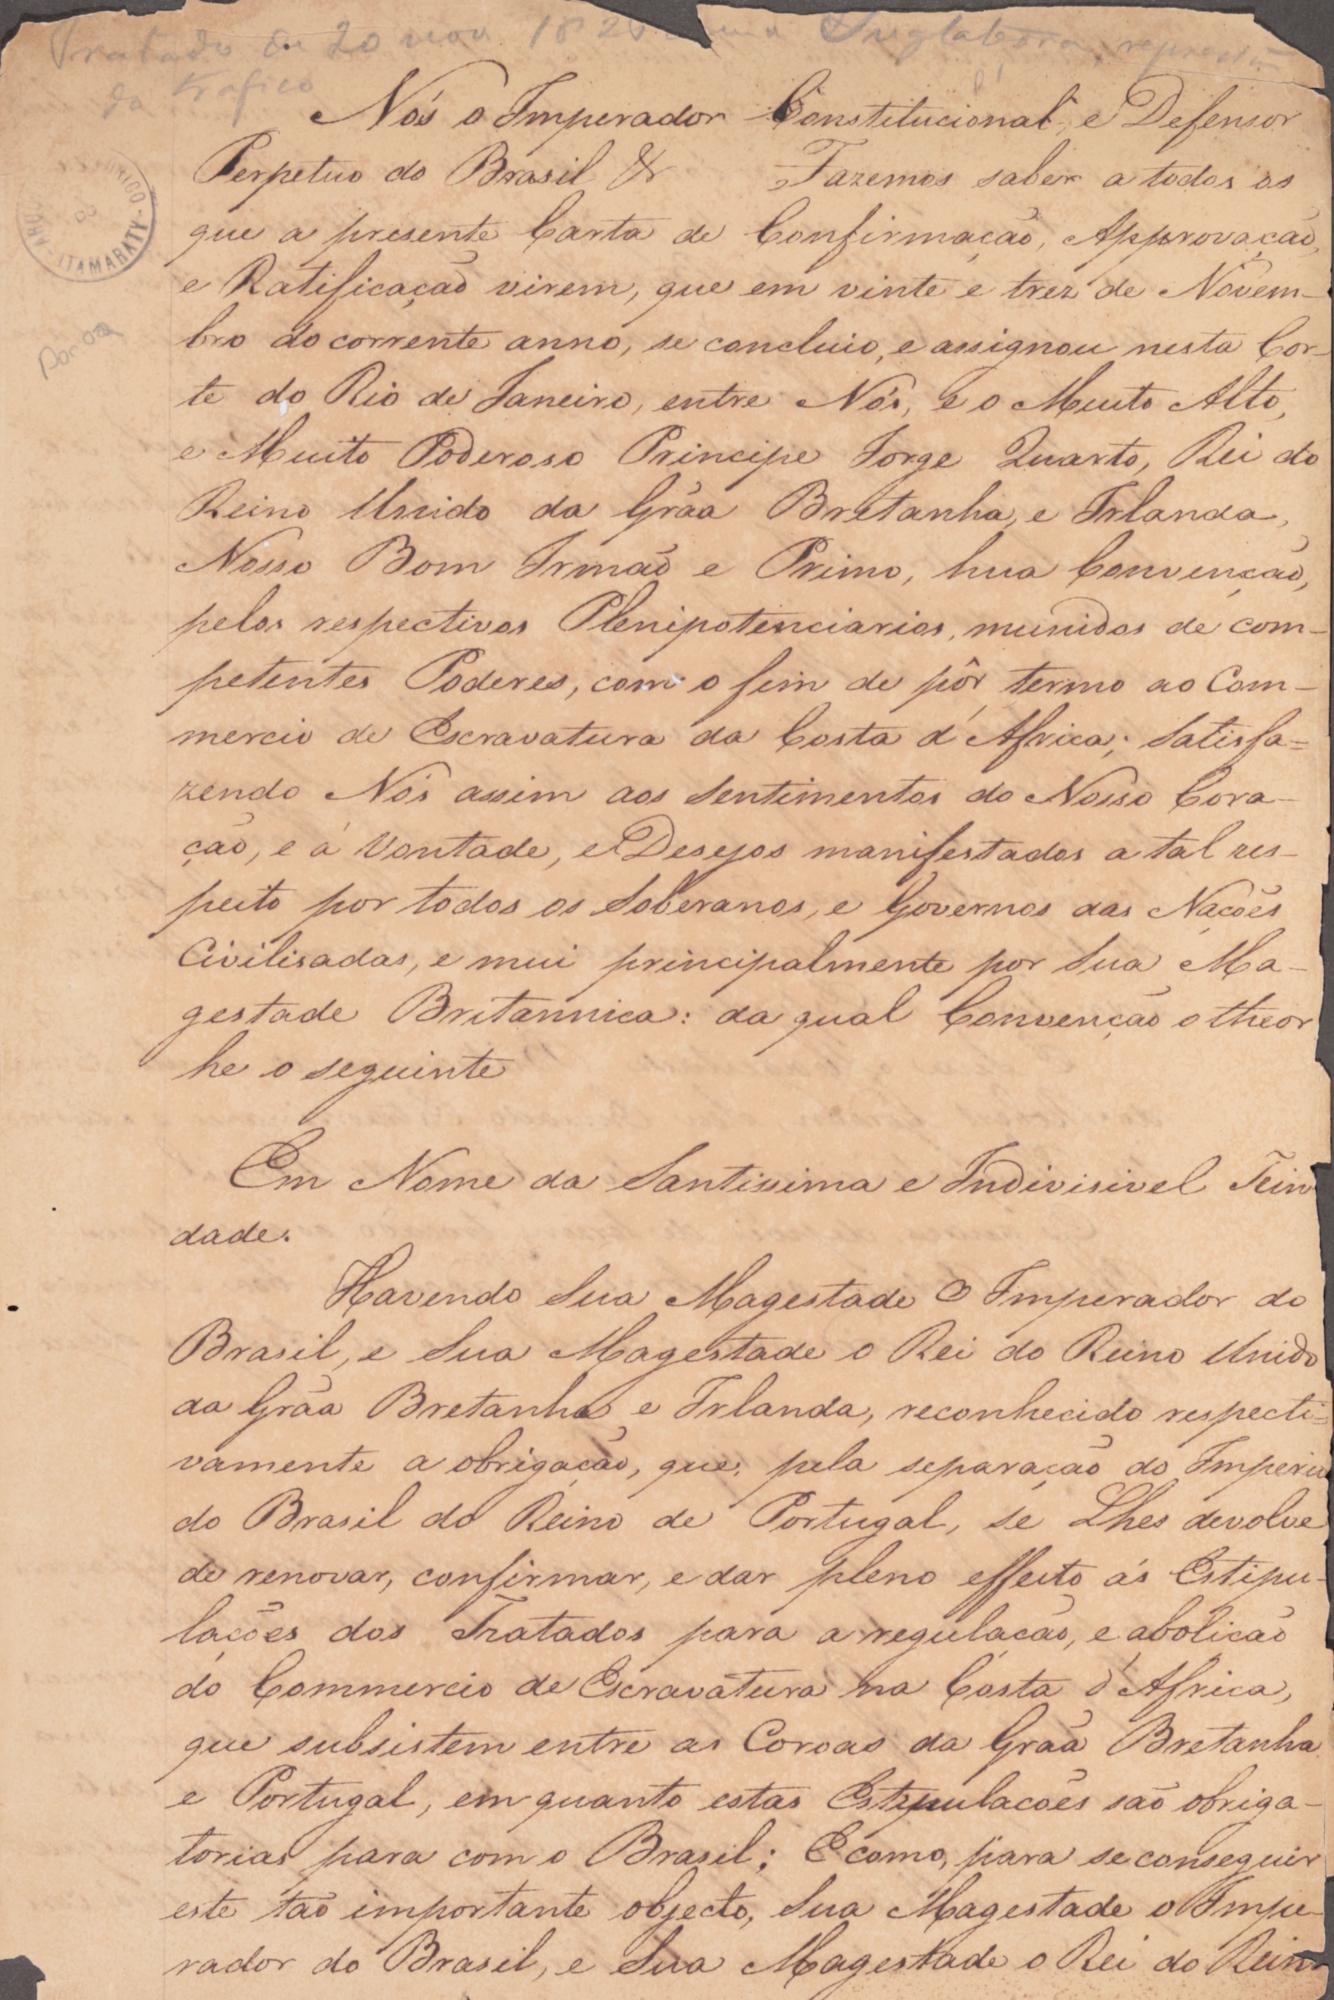 Tratado de 20 nov 1826 Inglaterra, repressão
da trafico
Nós o Imperador Constitucional, e Defensor
Perpetuo do Brasil &r Fazemos saber a todos os
que a presente Carta de Confirmação, Approvação,
e Ratificação virem, que em vinte e trez de Novem-
bro do corrente anno, se concluio, e assignou nesta Cor-
te do Rio de Janeiro, entre Nós, e o Muito Alto,
e Muito Poderoso Principe Jorge Quarto, Rei do
Reino Unido da Grãa Bretanha, e Irlanda,
Nosso Bom Irmaõ e Primo, hua Convenção,
pelos respectivos Plenipotenciarios, munidos de com-
petentes Poderes, com o fim de pôr termo ao Com-
mercio de Escravatura da Costa d'Africa; Satisfa=
zendo Nós assim aos Sentimentos do Nosso Cora-
ção, e á Vontade, e Desejos manifestados a tal res-
peito por todos os Soberanos, e Governos das Nações
Civilisadas, e mui principalmente por Sua Ma-
gestade Britannica: da qual Convenção o theor
he o seguinte
Em Nome da Santissima e Indivisivel Trin
dade.
Havendo Sua Magestade O Imperador do
Brasil, e Sua Magestade o Rei do Reino Unido
da Grãa Bretanha e Irlanda, reconhecido respecti=
vamente a obrigação, que, pela separação do Imperio
do Brasil do Reino de Portugal, se Lhes devolve
de renovar, confirmar, e dar pleno effeito ás Estipu-
lações dos Tratados para a regulacaõ, e abolicaõ
do Commercio de Escravatura na Costa d'Africa,
que subsistem entre as Coroas da Grãa Bretanha
e Portugal, em quanto estas Estipulacões saõ obriga-
torias para com o Brasil; E como, para se conseguir
este taõ importante objecto, Sua Magestade o Impe-
rador do Brasil, e Sua Magestade o Rei do Reino
ITAMARATY